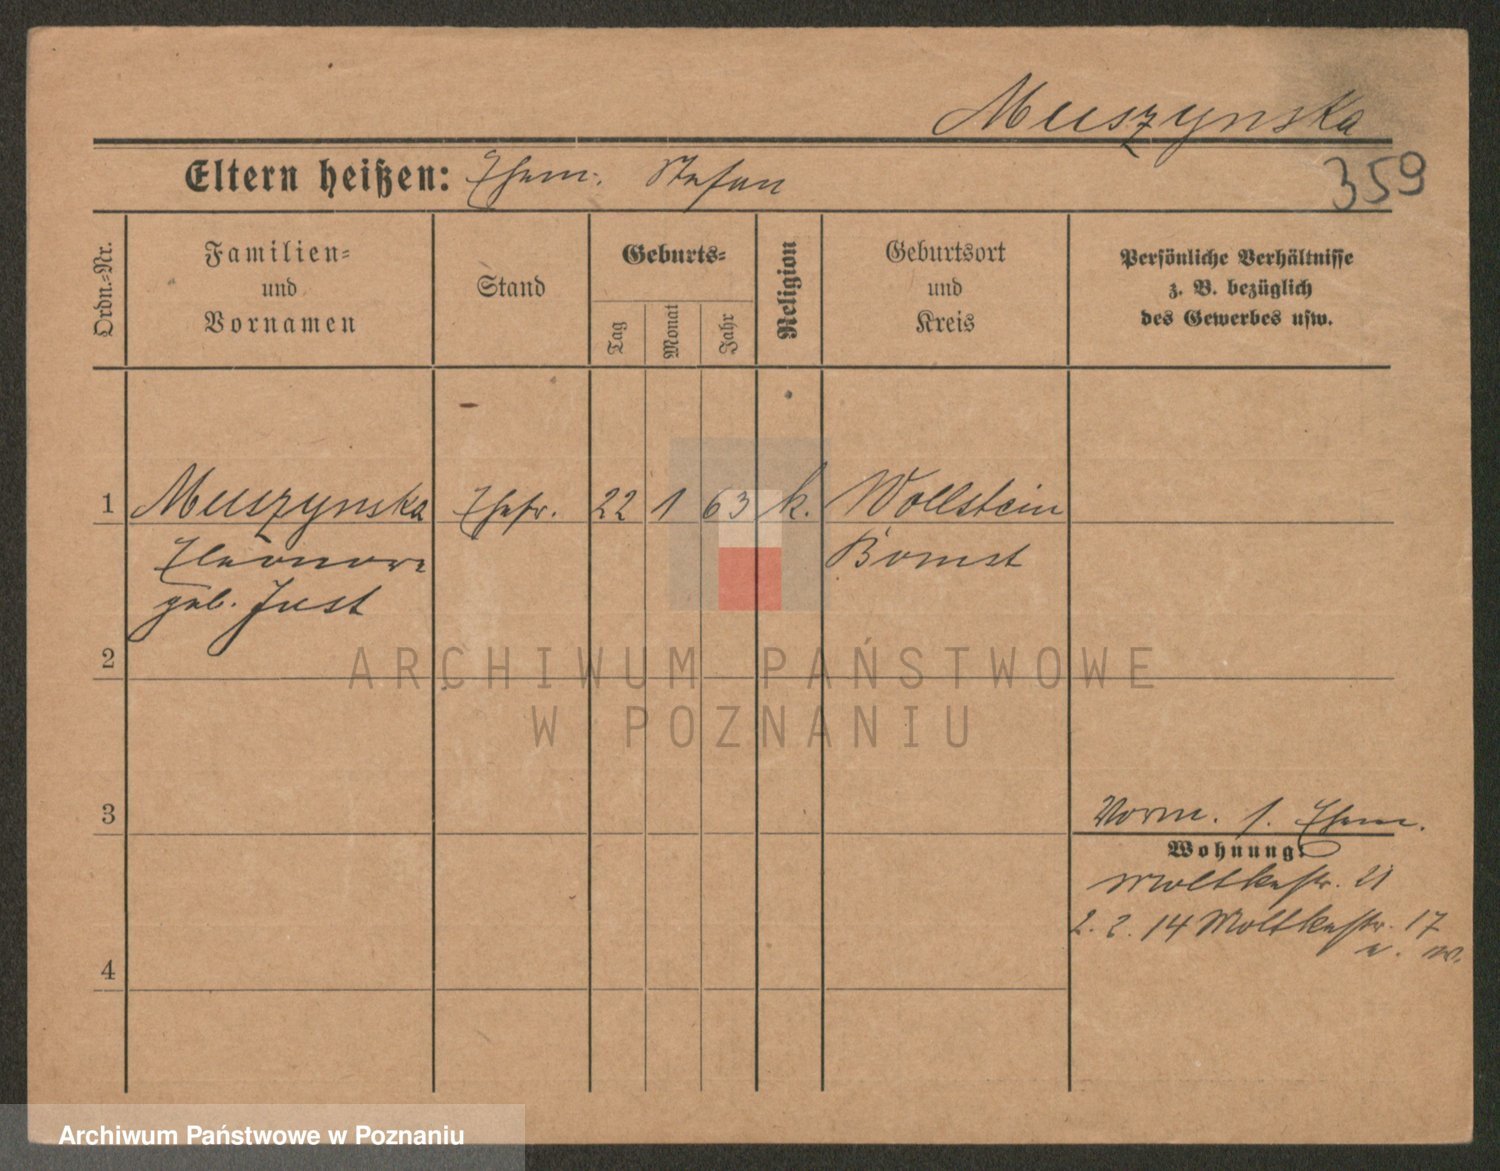 Muszynska
Eltern heißen: Ehem. Stefan
359
Ordn.-Nr.
Familien-
und
Vornamen
Stand
Geburts-
Tag
Monat
Jahr
Religion
Geburtsort
und
Kreis
Persönliche Verhältnisse
z. B. bezüglich
des Gewerbes usw.
1 Muszynska Ehefr. 22 1 63 k. Wollstein
Eleonore Bomst
geb. Just
2
ARCHIWUM PAŃSTWOWE
W POZNANIU
3
Vorm. s. Ehem.
Wohnung:
Moltkestr. 21
2. 2. 14 Moltkestr. 17
4
Archiwum Państwowe w Poznaniu